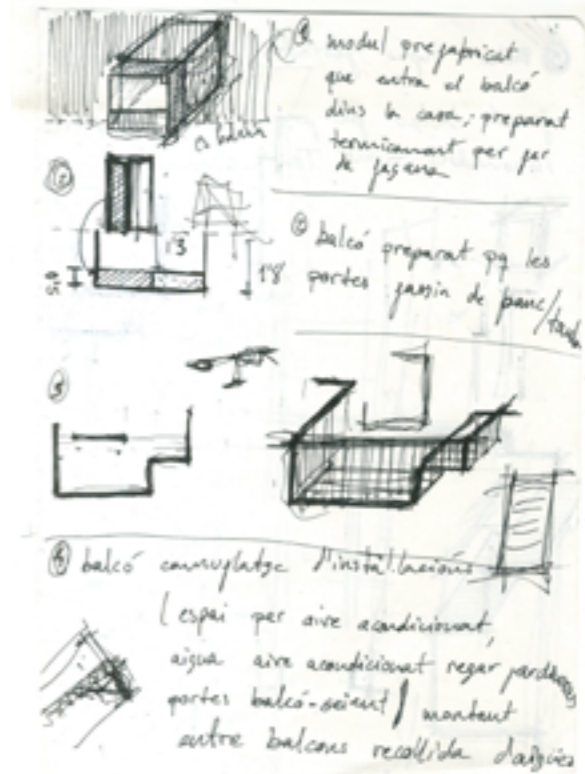 ① modul prefabricat
que entra el balcó
dins la casa; preparat
termicament per fer
de façana
②
1'3
1'8
② balcó preparat pq les
portes fassin de banc/taula
③
④ balcó camuflatge d'instal.lacions
(espai per aire acondicionat,
aigua aire acondicionat regar jardineres
portes balcó-seient / muntant
entre balcons recollida d'aigües